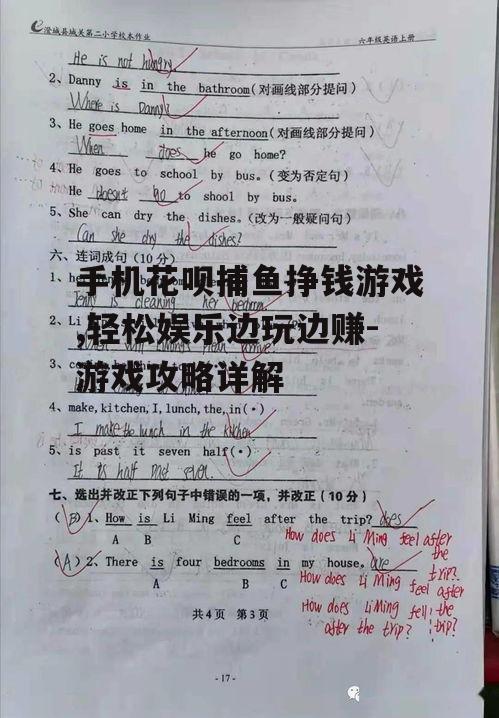 澄城县城关第二小学校本作业 六年级英语上册
He is not hungry
2、Danny is in the bathroom(对画线部分提问)
Where is Danny?
3、He goes home in the afternoon(对画线部分提问)
When does he go home?
4、He goes to school by bus.(变为否定句)
He doesn't go to shool by bus.
5、She can dry the dishes.(改为一般疑问句)
Can she dry the dishes?
六、连词成句(10分)
手机花呗捕鱼挣钱游戏
1、
is cleaning her bedroom
,轻松娱乐边玩边赚-
2、Li
游戏攻略详解
3、
4、make,kitchen,I,lunch,the,in(•)
I make the lunch in the kitchen
5、is past it seven half(•)
It is half past seven.
七、选出并改正下列句子中错误的一项,并改正(10分)
(B)1、How is Li Ming feel after the trip? does
A B C
How does Li Ming feel after the trip?
(A)2、There is four bedrooms in my house. are
A B C
How does Li Ming feel after the trip?
How does Li Ming fell after the trip?
共4页 第3页
- 17 -